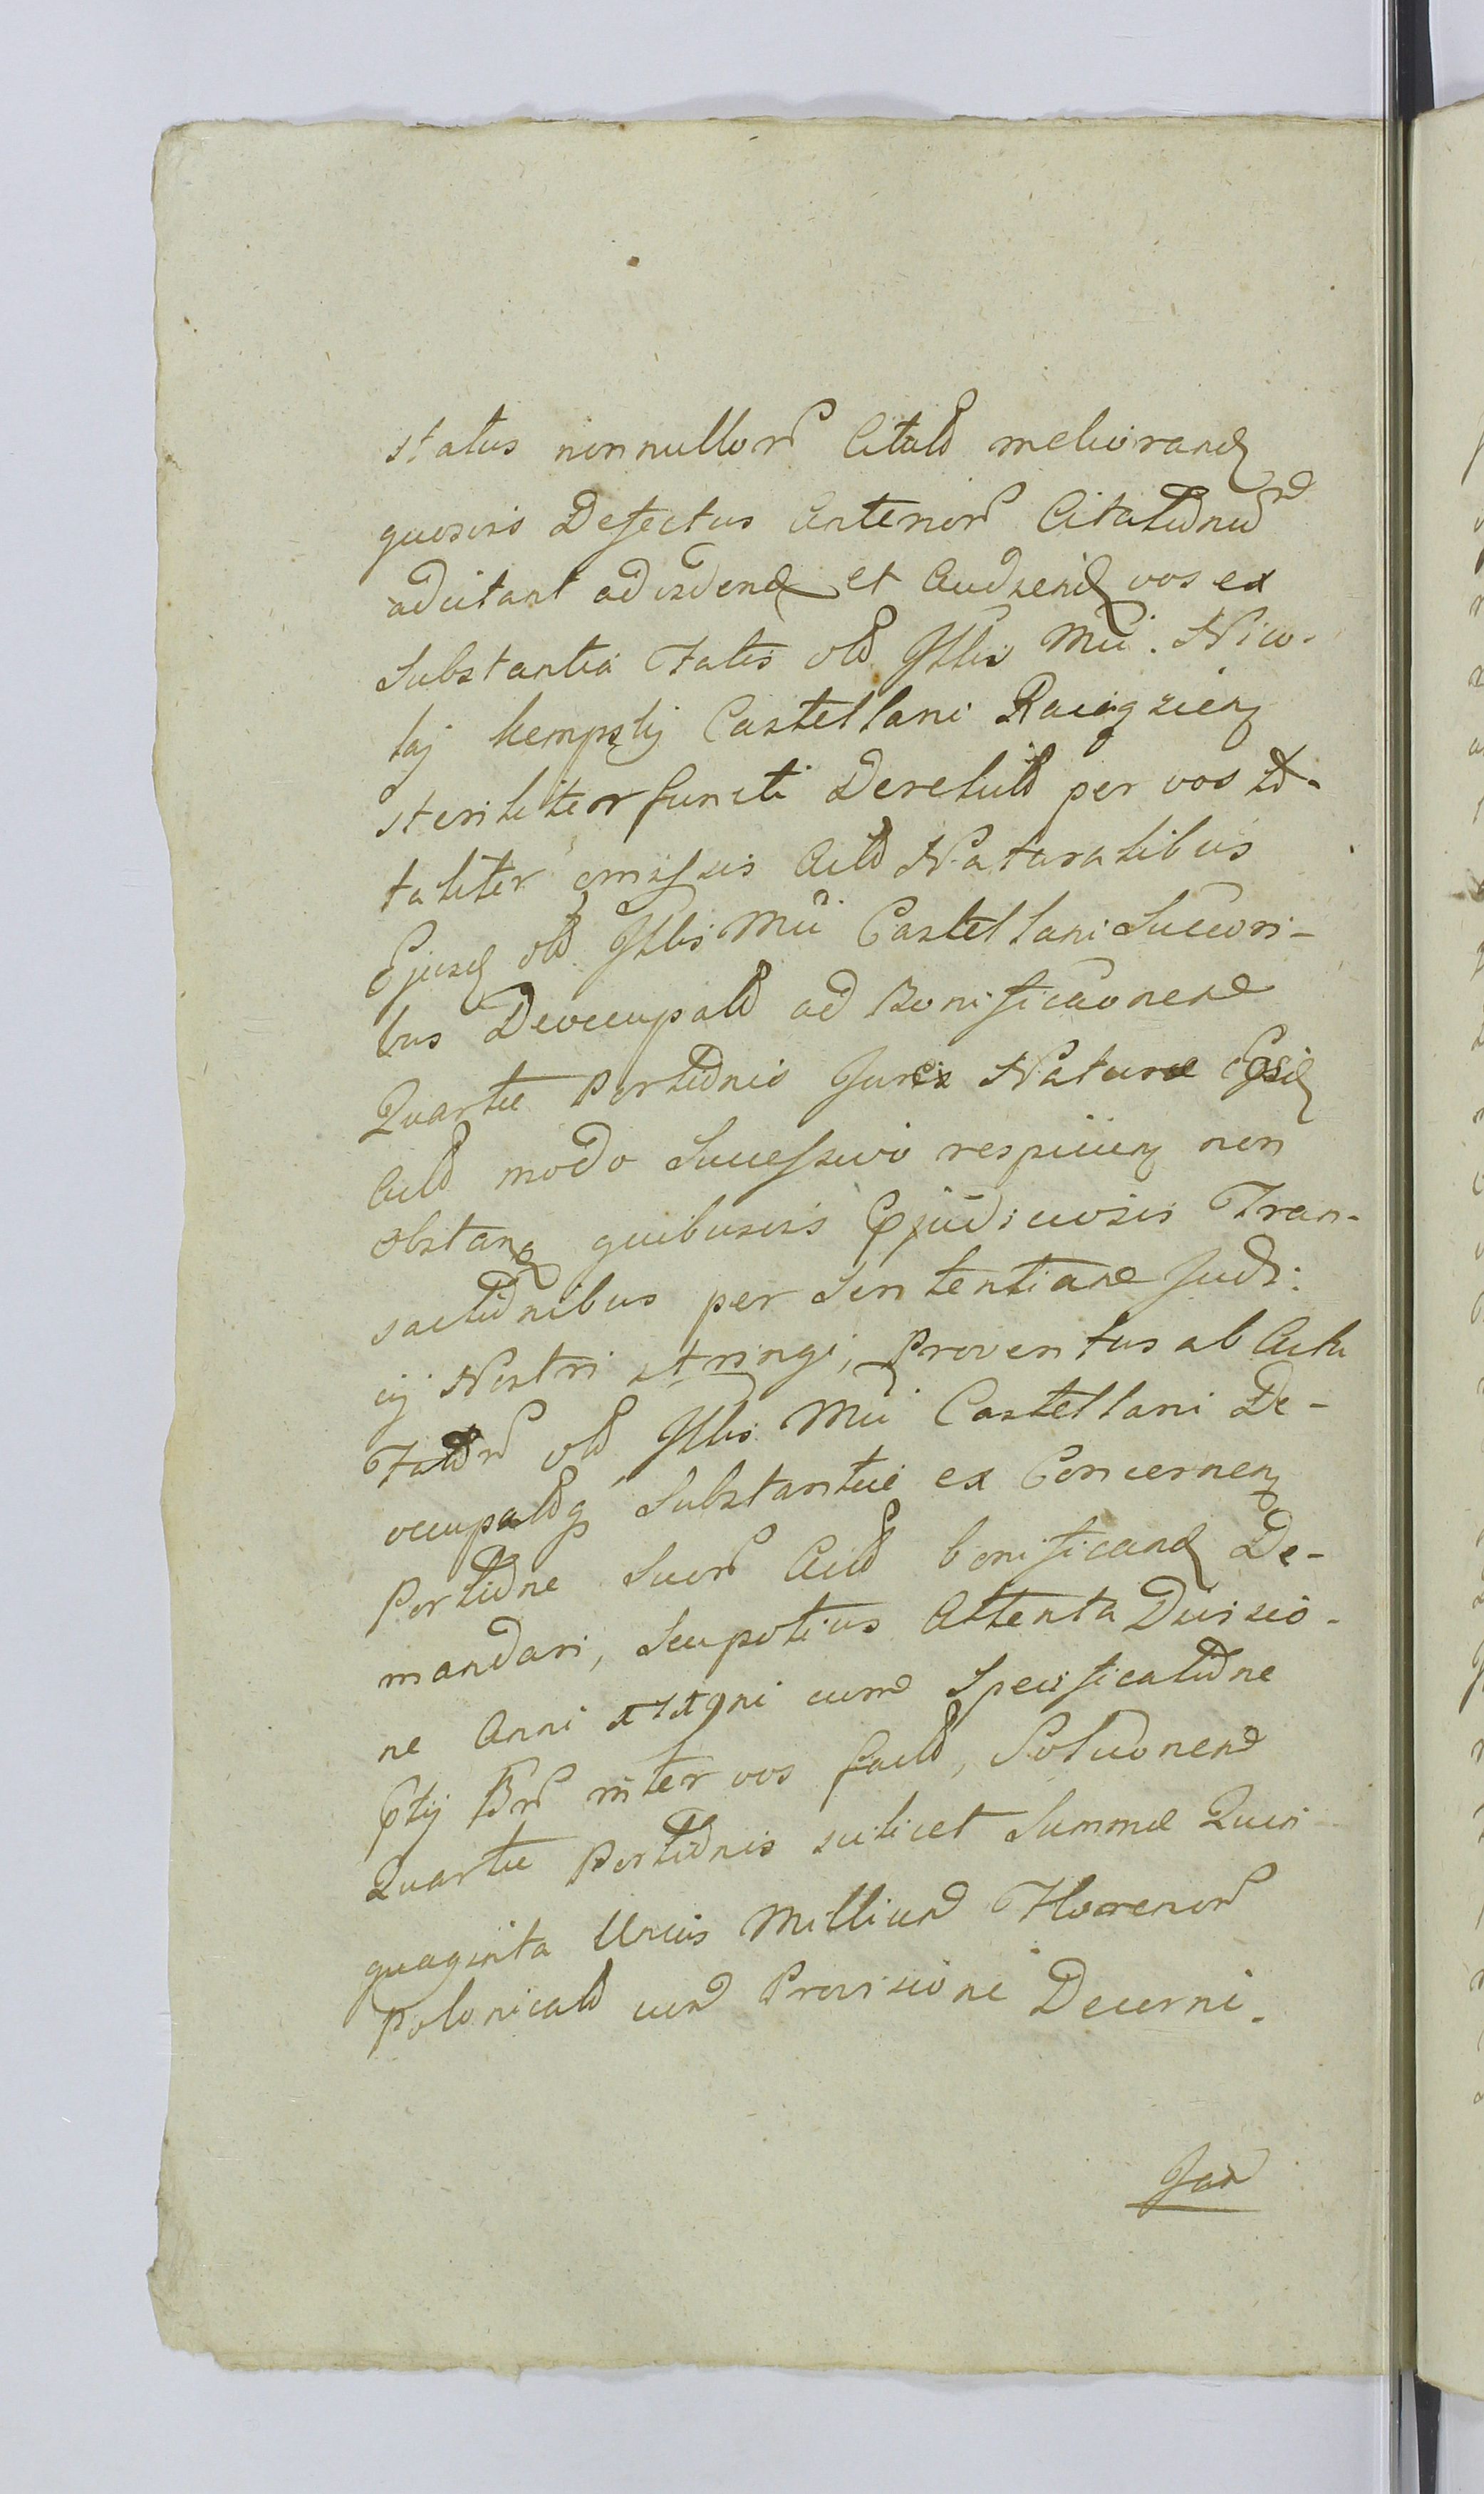 status nonnullor Citat meliorand
quosvis Defectus Anterior Citationu
adcitant ad vidend et Audiend vos ex
Substantia Fatis ol Illis Mci. Nico-
laj Kempskij Castellani Raciąziens
steriliter functi Derelict per vos to-
taliter omissis Act Naturalibus
Ejusd ol Illis Mci Castellani Succori-
bus Deoccupat ad Bonificaonem
Quartæ Portionis Juris Naturæ
Act modo Successivo respicien non
obstan quibusvis Tran-
sactionibus per Sententiam Judi-
cij Nostri stringi, Proventus ab Actu
Fator ol Illis Mci Castellani De-
occupatq Substantiæ ex Concernen
Portione Suor Act bonificand De-
mandari, Seu potius Attenta Divisio-
ne Anni cum Specificatione
inter vos fact, Soluonem
Quartæ Portionis scilicet Summæ Quin
quaginta Unius Millium Florenor
Polonical cum Provisione Decerni.